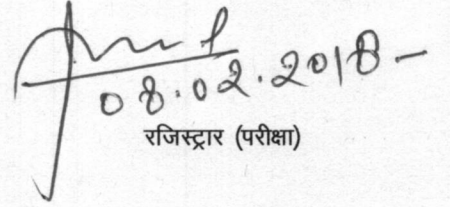 08.02.2018-
रजिस्ट्रार (परीक्षा)